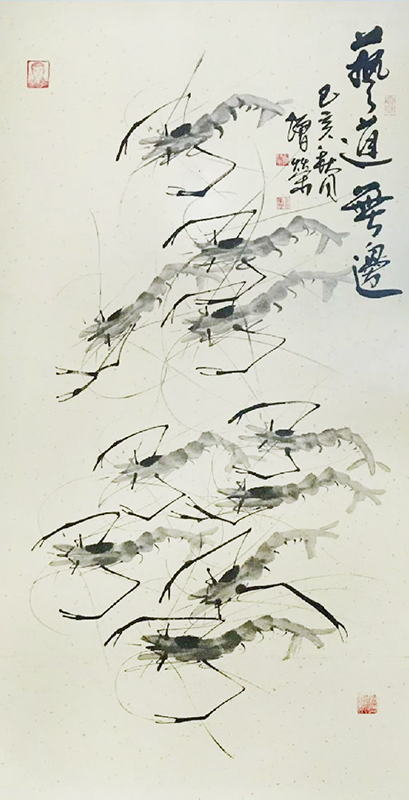 藝道無邊
己亥秋月